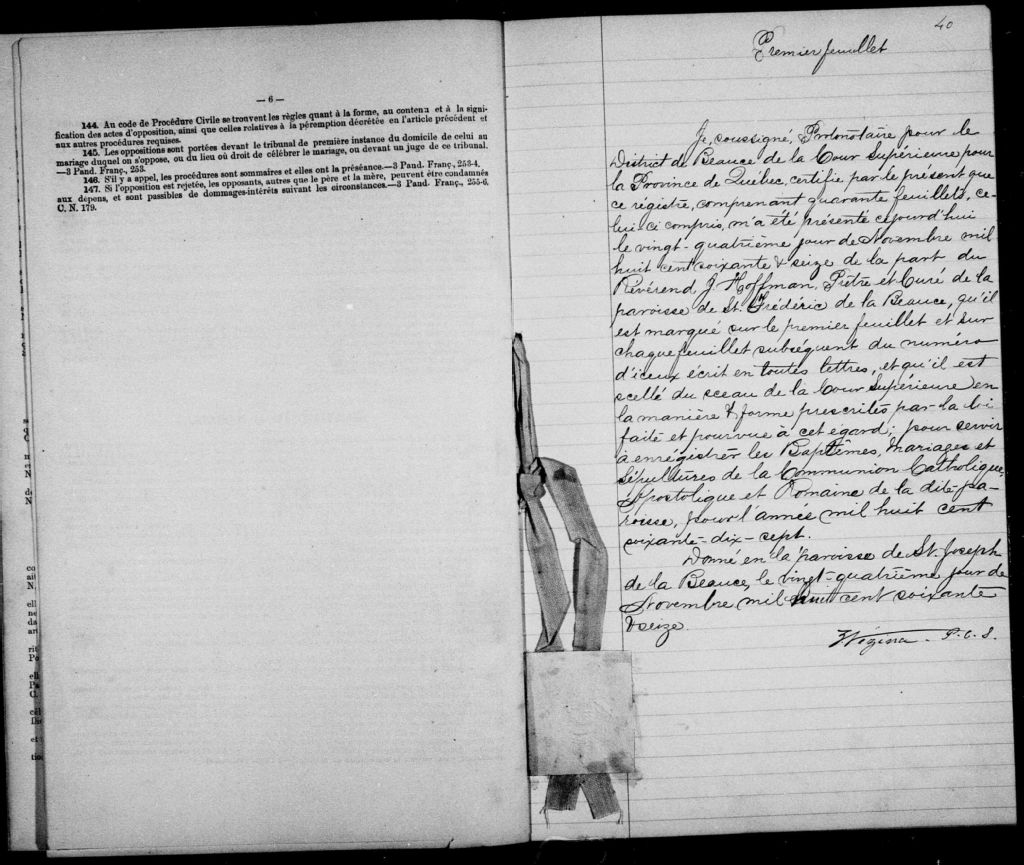 — 6 —
144. Au code de Procédure Civile se trouvent les règles quant à la forme, au contenu et à la signi-
fication des actes d'opposition, ainsi que celles relatives à la péremption décrétée en l'article précédent et
aux autres procédures requises.
145. Les oppositions sont portées devant le tribunal de première instance du domicile de celui au
mariage duquel on s'oppose, ou du lieu où droit de célébrer le mariage, ou devant un juge de ce tribunal.
—3 Pand. Franç., 253.
146. S'il y a appel, les procédures sont sommaires et elles ont la préséance.—3 Pand. Franç., 253-4.
147. Si l'opposition est rejetée, les opposants, autres que le père et la mère, peuvent être condamnés
aux dépens, et sont passibles de dommages-intérêts suivant les circonstances.—3 Pand. Franç., 255-6.
C. N. 179.
40
Premier feuillet
Je, soussigné, Protonotaire pour le
District de Beauce de la Cour Supérieure pour
la Province de Québec, certifie par le présent que
ce régistre, comprenant quarante feuillets, ce-
lui-ci compris, m'a été présenté cejourd'hui
le vingt-quatrième jour de Novembre mil
huit cent soixante & seize de la part du
Révérend J. Hoffman, Prêtre et Curé de la
paroisse de St. Frédéric de la Beauce, qu'il
est marqué sur le premier feuillet et sur
chaque feuillet subséquent du numéro
d'iceux écrit en toutes lettres, et qu'il est
scellé du sceau de la Cour Supérieure en
la manière & forme prescrites par la loi
faite et pourvue à cet égard; pour servir
à enrégistrer les Baptêmes, Mariages et
Sépultures de la Communion Catholique,
Apostolique et Romaine de la dite pa-
roisse, pour l'année mil huit cent
soixante-dix-sept.
Donné en la paroisse de St. Joseph
de la Beauce, le vingt-quatrième jour de
Novembre mil huit cent soixante
& seize.
Vézina P.C.S.